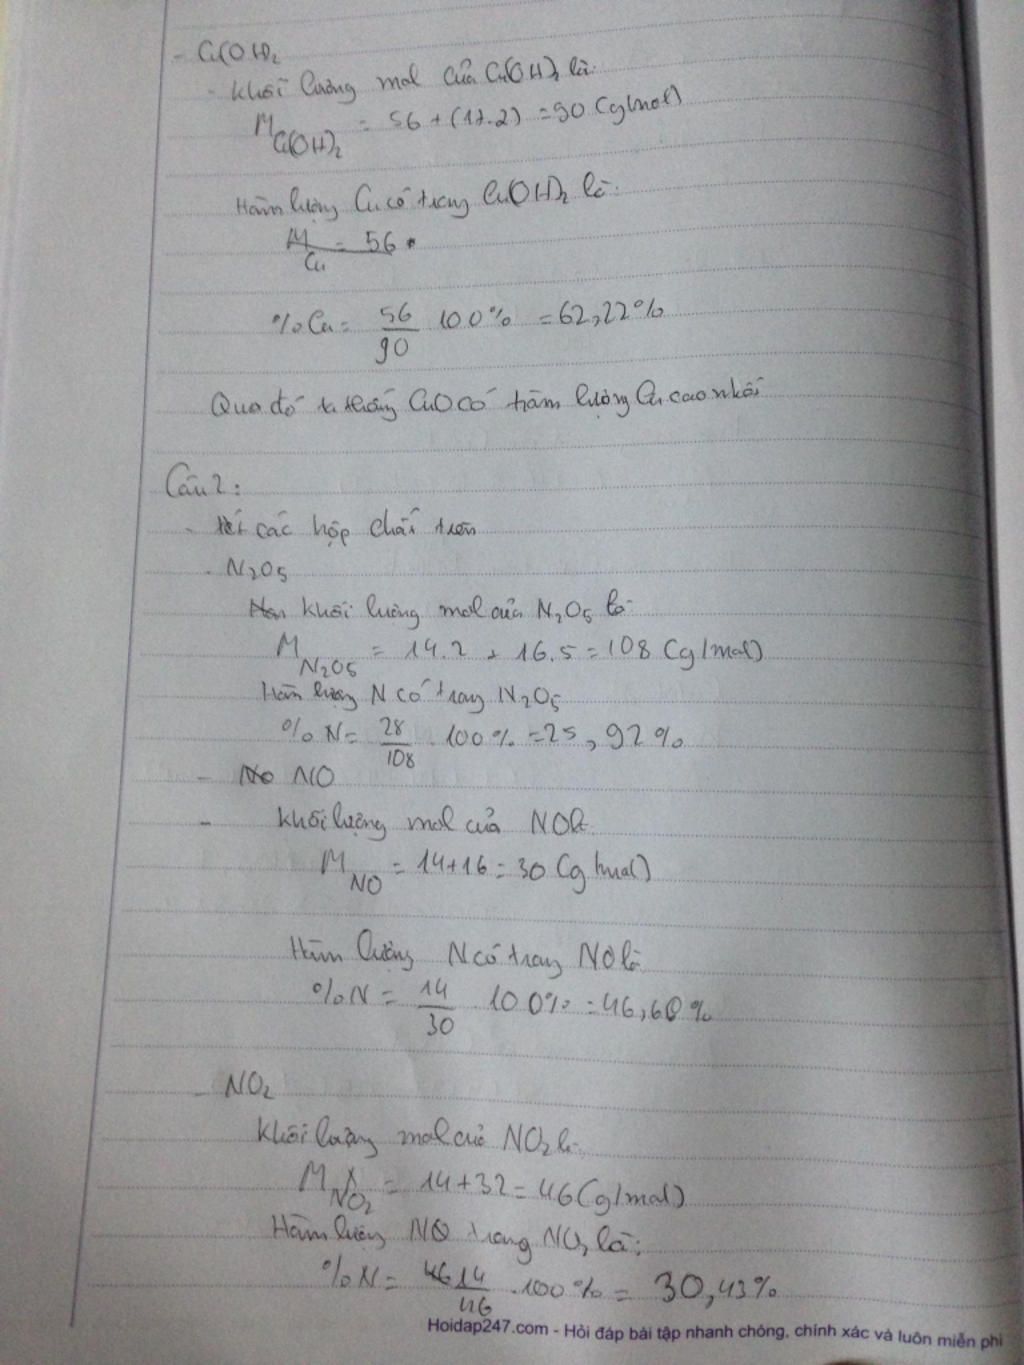 - Cu(OH)₂
- Khối lượng mol của Cu(OH)₂ là:
M Cu(OH)₂ = 56 + (17.2) = 90 (g/mol)
Hàm lượng Cu có trong Cu(OH)₂ là:
M Cu = 56
%Cu = 56/90 100% = 62,22%
Qua đó ta thấy CuO có hàm lượng Cu cao nhất
Câu 2:
- các hợp chất trên
- N₂O₅
Khối lượng mol của N₂O₅ là:
M N₂O₅ = 14.2 + 16.5 = 108 (g/mol)
Hàm lượng N có trong N₂O₅
% N = 28/108 . 100% = 25,92%
- NO
- Khối lượng mol của NO là
M NO = 14+16 = 30 (g/mol)
Hàm lượng N có trong NO là
%N = 14/30 100% = 46,66%
- NO₂
Khối lượng mol của NO₂ là:
M NO₂ = 14+32 = 46 (g/mol)
Hàm lượng NO trong NO₂ là:
%N = 14/46 . 100% = 30,43%
Hoidap247.com - Hỏi đáp bài tập nhanh chóng, chính xác và luôn miễn phí